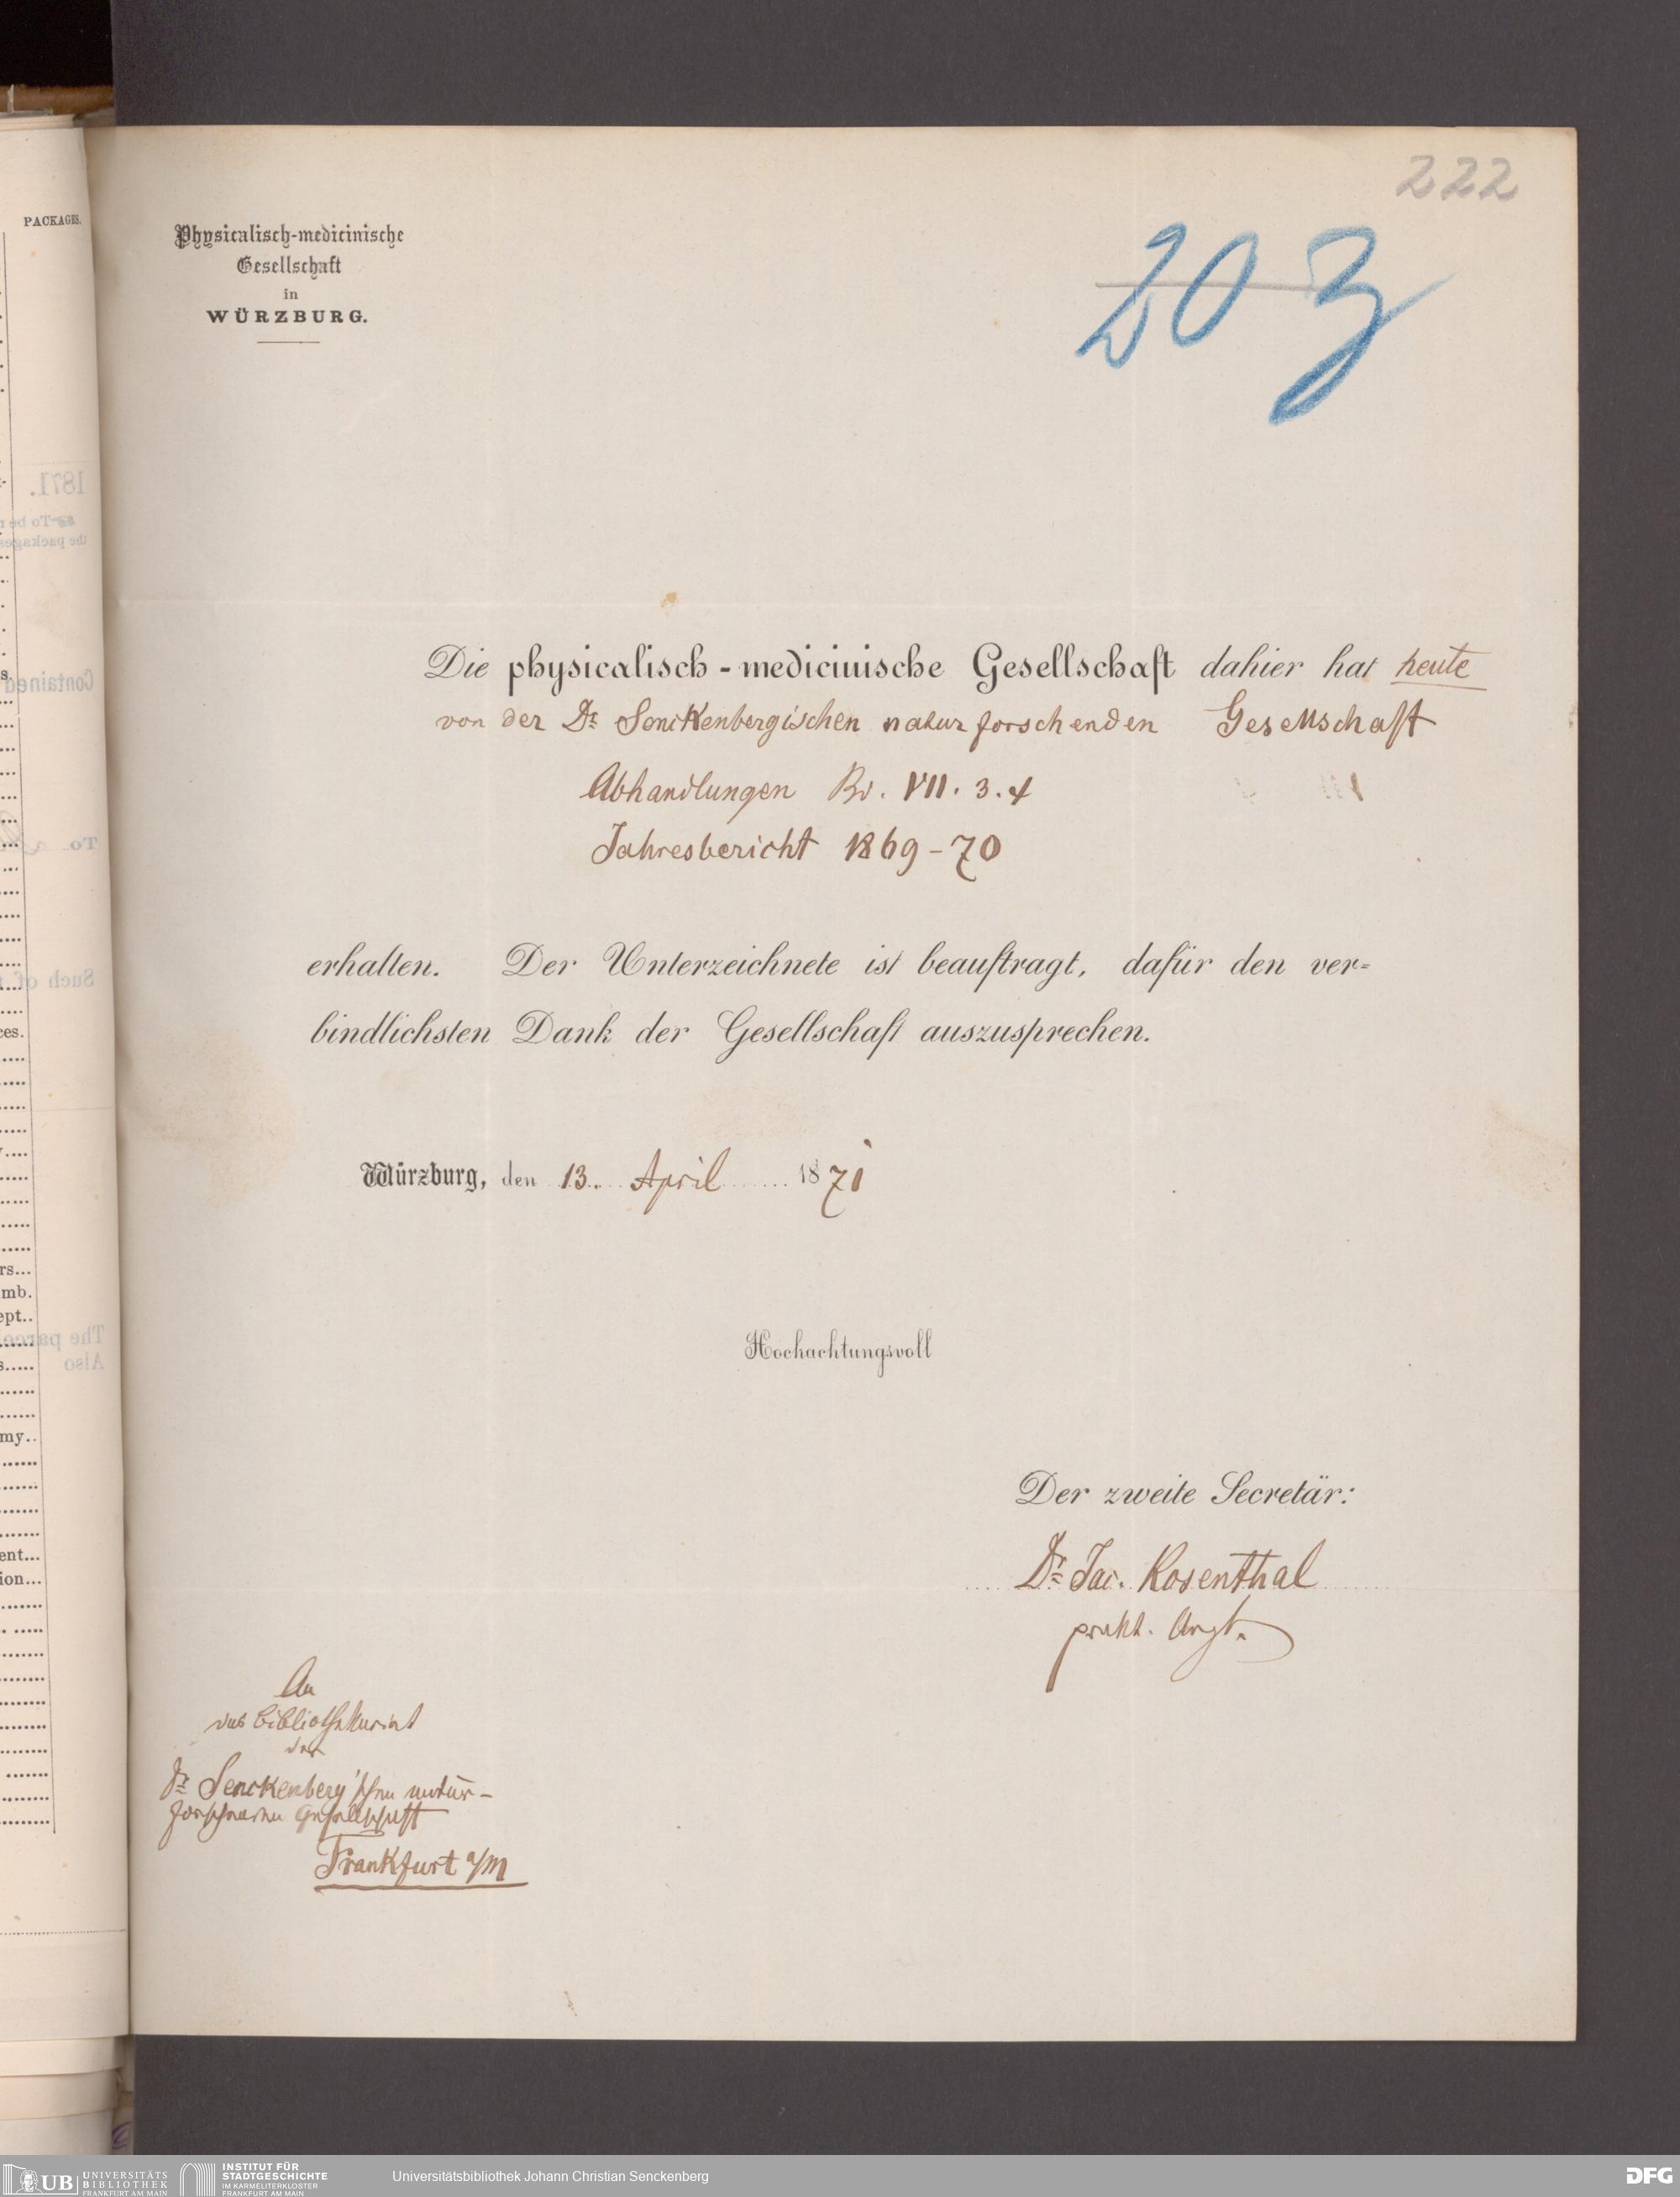 222
203
PACKAGES.
Physicalisch-medicinische
Gesellschaft
in
WÜRZBURG.
Die physicalisch-medicinische Gesellschaft dahier hat heute
von der Dr Senckenbergischen naturforschenden Gesellschaft
Abhandlungen Bd. VII. 3. 4
Jahresbericht 1869-70
erhalten. Der Unterzeichnete ist beauftragt, dafür den ver-
bindlichsten Dank der Gesellschaft auszusprechen.
Würzburg, den 13. April 1871
Hochachtungsvoll
Der zweite Secretär:
Dr Jac. Rosenthal
prakt. Arzt.
An
das Bibliothekariat
der
Dr Senckenberg'schen natur-
forschenden Gesellschaft
Frankfurt a/M
UB UNIVERSITÄTS
BIBLIOTHEK
FRANKFURT AM MAIN
INSTITUT FÜR
STADTGESCHICHTE
IM KARMELITERKLOSTER
FRANKFURT AM MAIN
Universitätsbibliothek Johann Christian Senckenberg
DFG